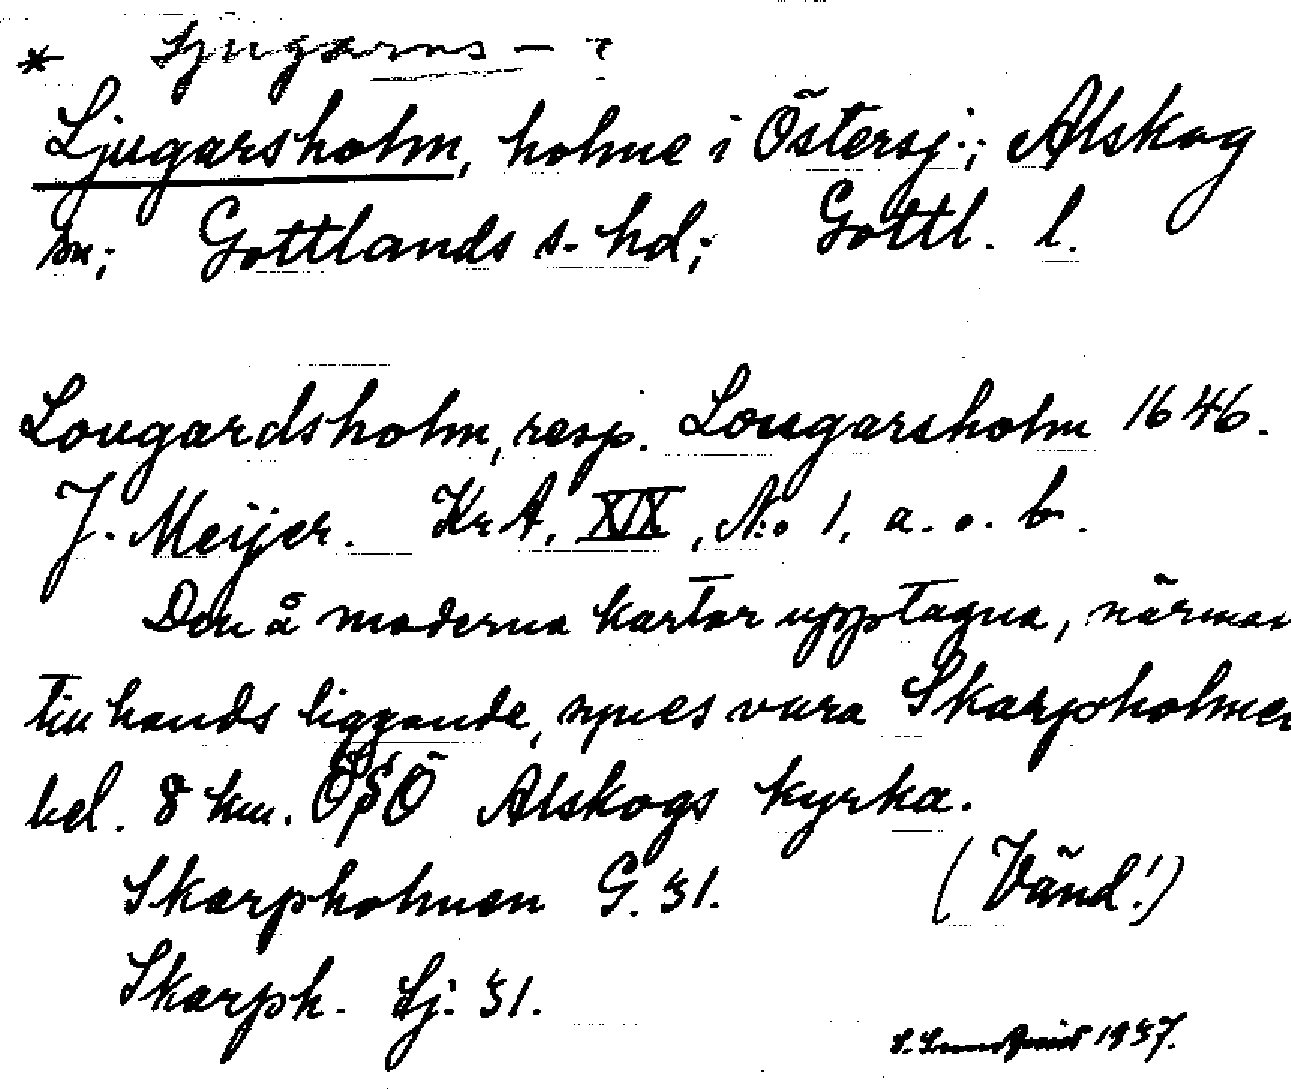 * Ljugarns - ?
Ljugarsholm, holme i Östersj.; Alskog
sn; Gottlands s. hd; Gottl. l.
Lougardsholm, resp. Lougarsholm 1646.
J. Meijer. KrA, XIX, N:o 1, a. o. b.
Den å moderna kartor upptagna, närmas
till hands liggande, synes vara Skarpholmen
bel. 8 km. OSO Alskogs kyrka.
Skarpholmen G. 31. (Vänd!)
Skarph. Sj. 31.
1937.